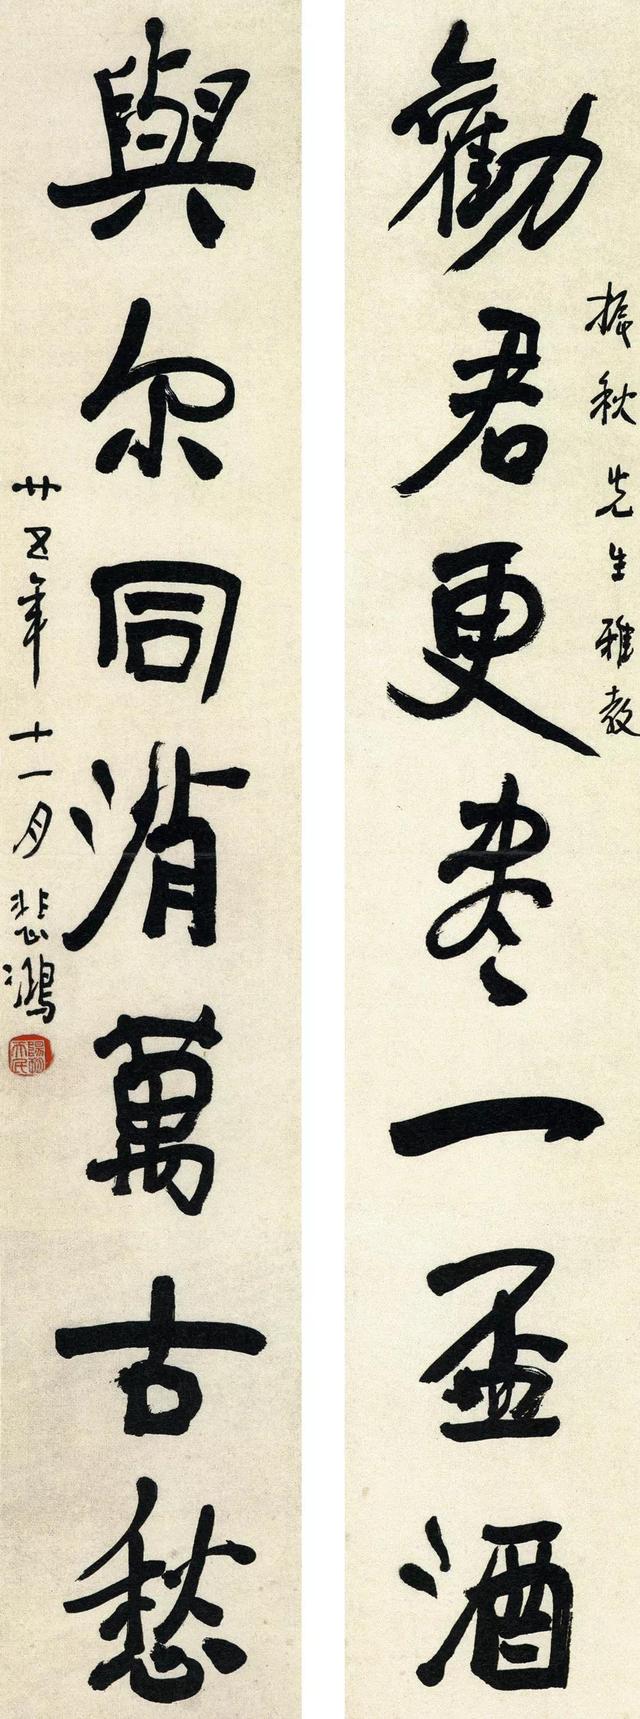 振秋先生雅教
勸君更尽一盃酒
與尔同消萬古愁
廿五年十一月悲鴻
陽朔天民